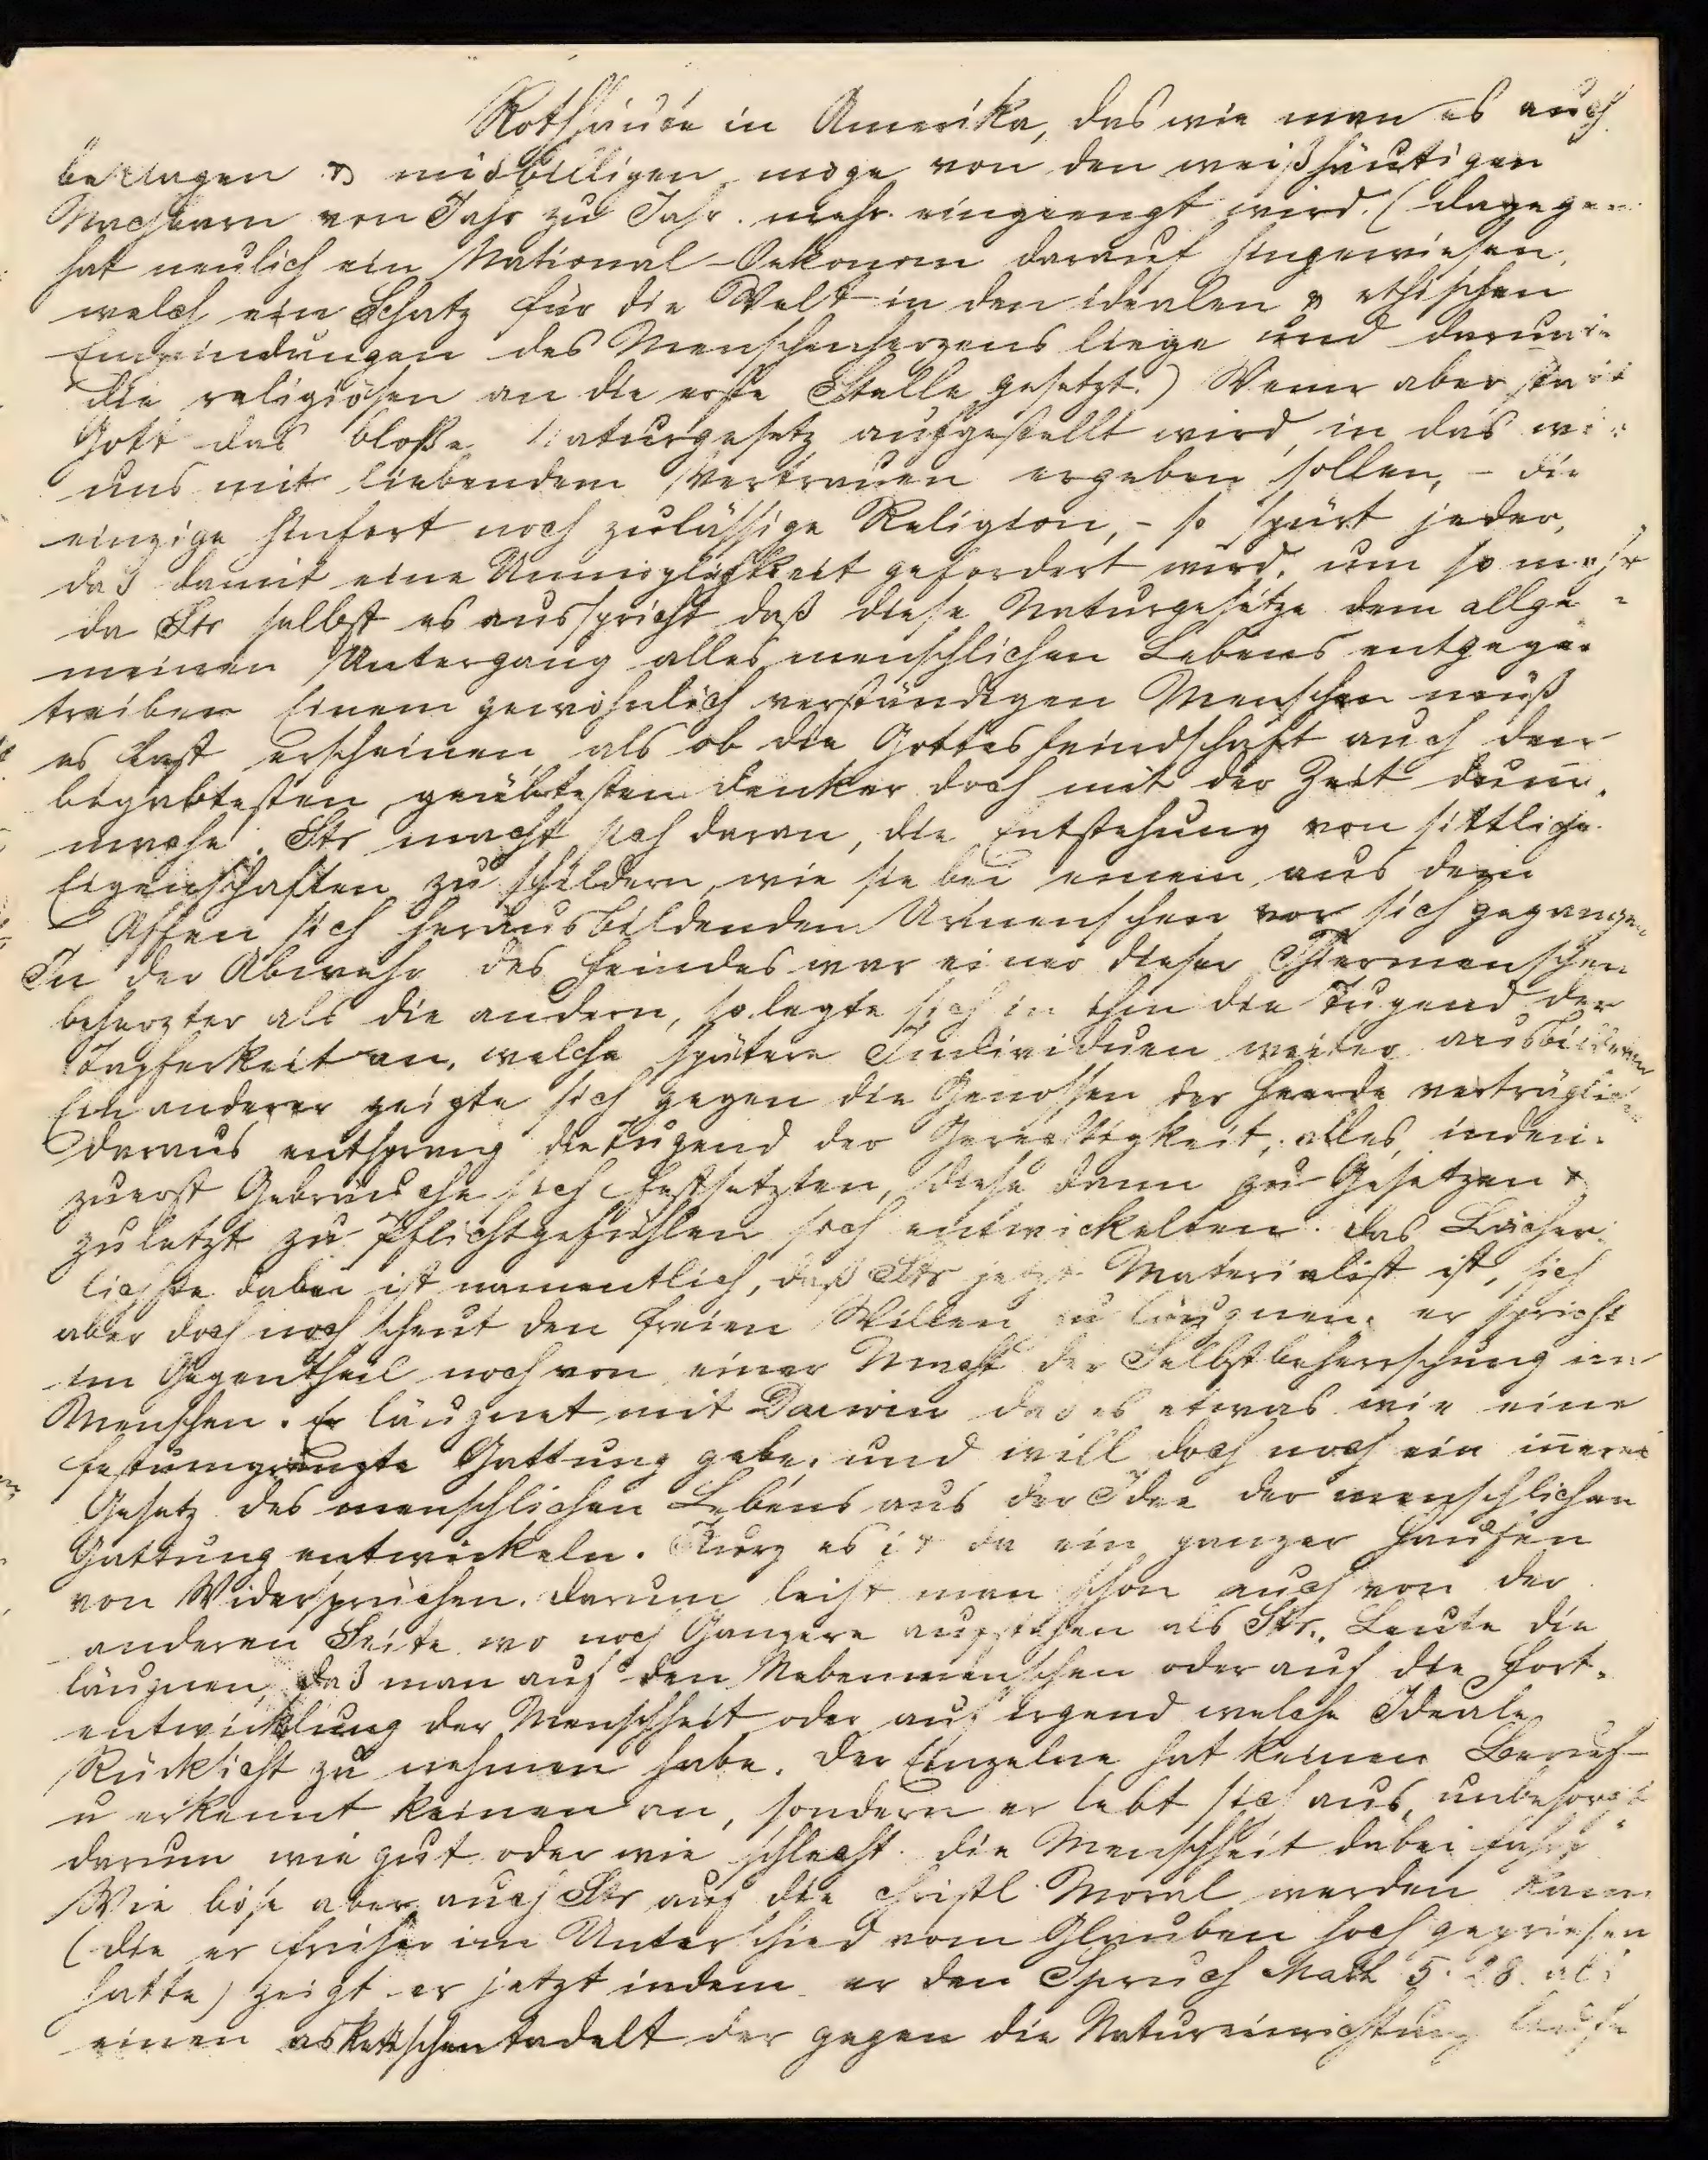 Rothhäute in Amerika, das wie man es auch
beklagen & misbilligen möge von den weißhäutigen
Nachbarn von Jahr zu Jahr mehr eingeengt wird. (dagegen
hat neulich ein National-Oekonom darauf hingewiesen,
welch ein Schatz für die Welt in den idealen & ethischen
Empfindungen des Menschenherzens liege und darum
die religiösen an die erste Stelle gesetzt.) Wenn aber statt
Gott das bloße Naturgesetz aufgestellt wird, in das wir
uns mit liebendem Vertrauen ergeben sollen, – die
einzige hinfort noch zulässige Religion, – so spürt jeder,
daß damit eine Unmöglichkeit gefordert wird, um so mehr
da Str selbst es ausspricht daß diese Naturgesetze dem allge-
meinen Untergang alles menschlichen Lebens entgegen
treiben Einem gewöhnlich verständigen Menschen muß
es fast erscheinen als ob die Gottesfeindschaft auch den
begabtesten geübtesten Denker doch mit der Zeit dumm
mache. Str macht sich daran, die Entstehung von sittliche
Eigenschaften zu schildern, wie sie bei einem aus dem
Affen sich herausbildenden Urmenschen vor sich gegangen
In der Abwehr des Feindes war einer dieser Thiermenschen
beherzter als die andern, so legte sich in ihm die Tugend der
Tapferkeit an, welche spätere Individuen weiter ausbildeten
Ein anderer zeigte sich gegen die Genossen der Heerde verträglich
daraus entsprang die Tugend der Gerechtigkeit; alles, indem
zuerst Gebräuche sich festsetzten, diese dann zu Gesetzen &
zuletzt zu Pflichtgefühlen sich entwickelten. Das Lächer-
lichste dabei ist namentlich, daß Str jetzt Materialist ist, sich
aber doch noch scheut den freien Willen zu läugnen; er spricht
im Gegentheil noch von einer Macht der Selbstbeherrschung im
Menschen. Er läugnet mit Darwin daß es etwas wie eine
festumgrenzte Gattung gebe, und will doch noch ein inneres
Gesetz des menschlichen Lebens aus der Idee der menschlichen
Gattung entwickeln. Kurz es ist da ein ganzer Haufen
von Widersprüchen. Darum leiht man schon auch von der
anderen Seite wo noch Ganzere aufstehen als Str., Leute die
läugnen, daß man auf den Nebenmenschen oder auf die Fort-
entwicklung der Menschheit oder auf irgend welche Ideale
Rücksicht zu nehmen habe. Der Einzelne hat keinen Beruf
u erkennt keinen an, sondern er lebt sich aus, unbesorgt
darum wie gut oder wie schlecht die Menschheit dabei fahre
Wie böse aber auch Str auf die christl Moral werden kann
(die er früher im Unterschied vom Glauben hoch gepriesen
hatte) zeigt er jetzt indem er den Spruch Math 5. 28. als
einen asketischen tadelt der gegen die Natureinrichtung laufe